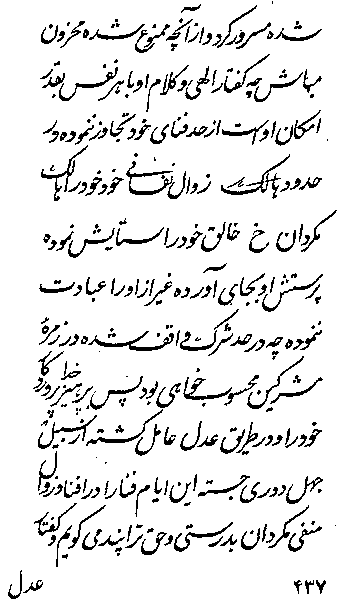 شده مسرور کرد و از آنچه ممنوع شده محزون
مباش چه گفتار الهی و کلام او با هر نفس بقدر
امکان اوست از حد فنای خود تجاوز نموده در
حدود هالک زوال نفسانی خود خود را هالک
مگردان خ خالق خود را ستایش نموده
پرستش او بجای آورده غیر از او را عبادت
ننموده چه در حد شرک واقف شده در زمرهٔ
مشرکین محسوب خواهی بود پس بپرهیز پروردکار
خود را و در طریق عدل عامل کشته از سبیل
جهل دوری جسته این ایام فنا را در افنا و زوال
منفی مکردان بدرستی و حق ترا پند می کویم و کفتار
۴۳۷ عدل